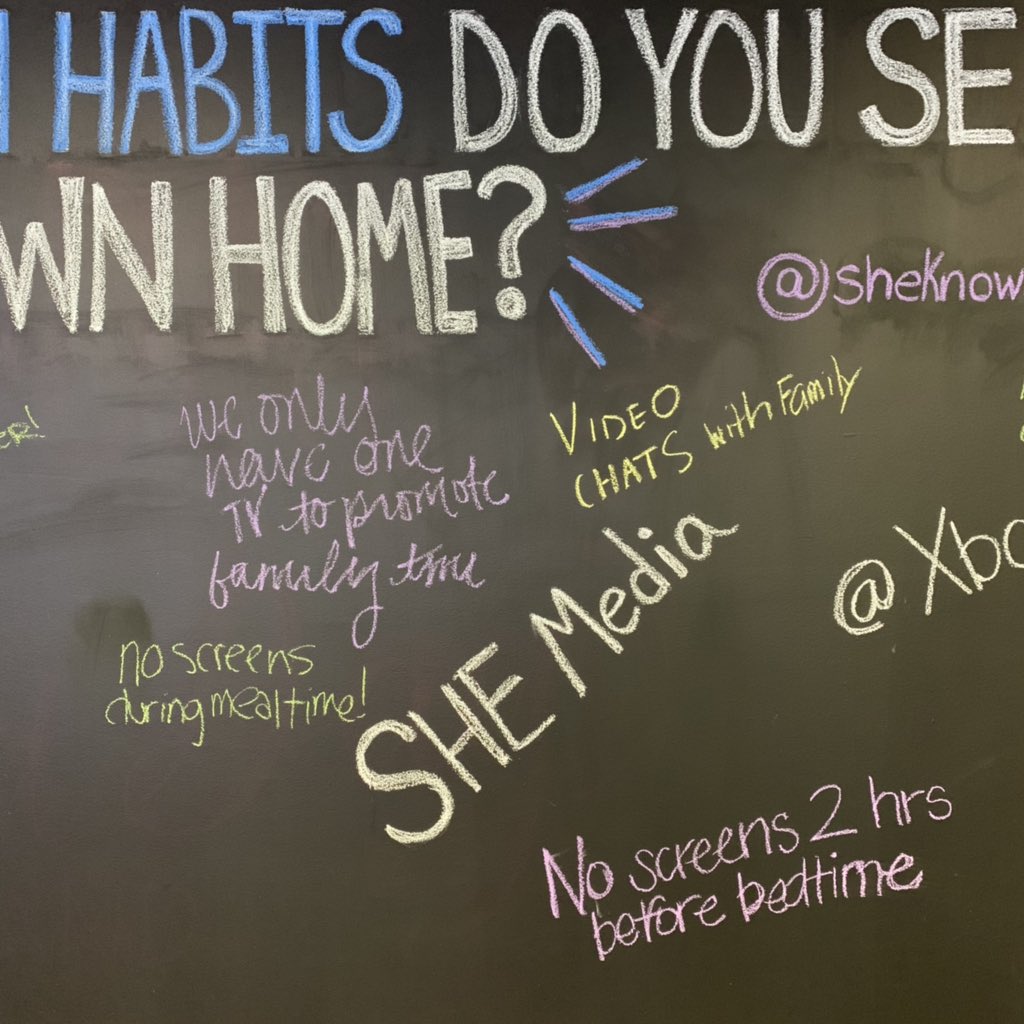 HABITS DO YOU SE
WN HOME?
@sheKnow
ER!
we only
have one
TV to promote
family time
VIDEO
CHATS with Family
SHE Media
@Xbo
no screens
during mealtime!
No screens 2 hrs
before bedtime